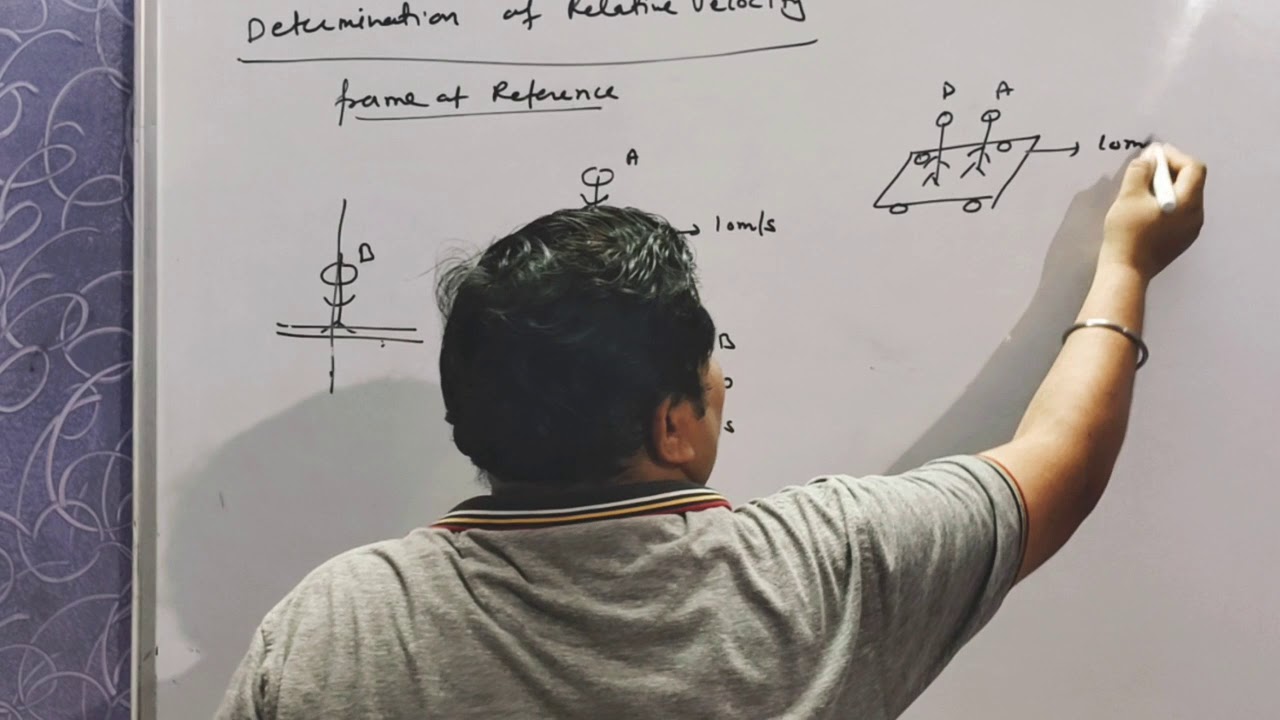 Determination of Relative Velocity
frame of Reference
D A
10m
A
10m/s
B
B
s